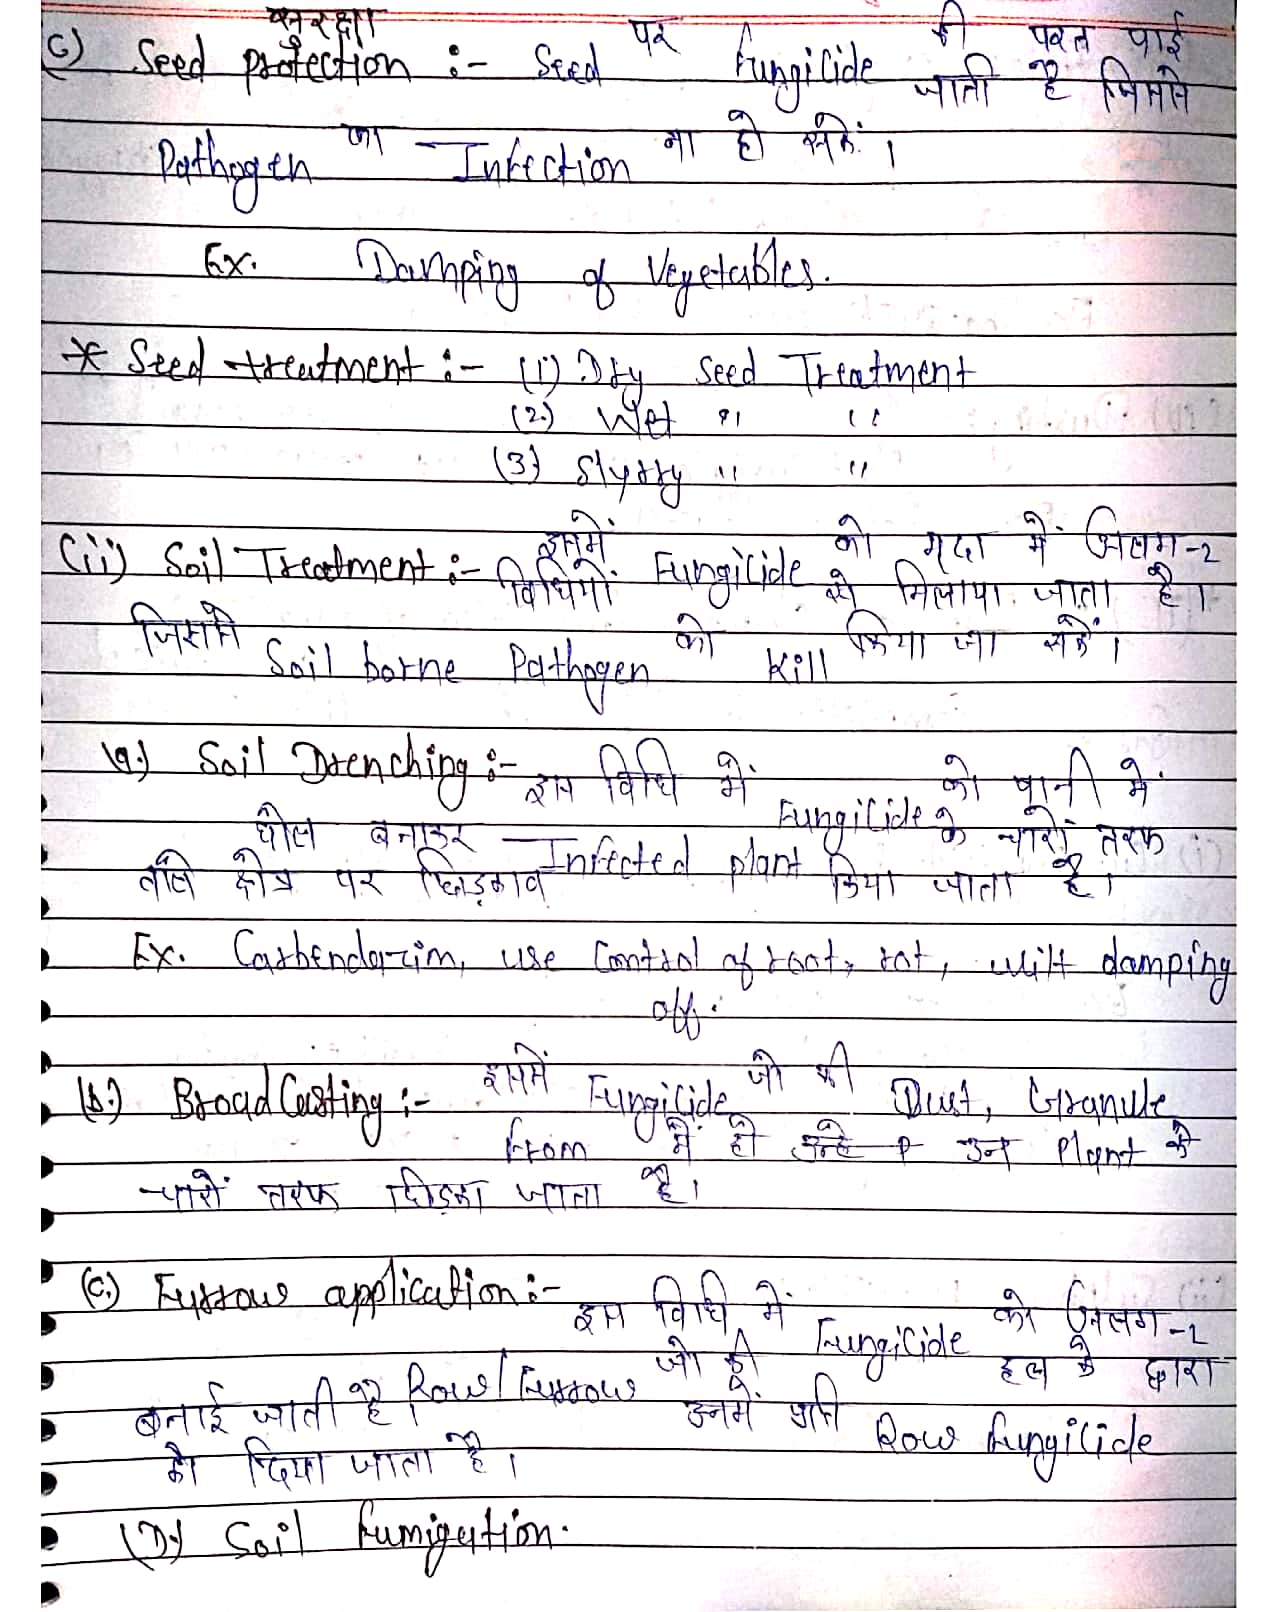 संरक्षा
C) Seed protection :- Seed पर Fungicide की परत पाई जाती है जिससे
Pathogen का Infection ना हो सकें।
Ex. Damping of Vegetables.
* Seed treatment :- (1) Dry Seed Treatment
(2.) Wet " "
(3) Slyrry " "
(ii) Soil Treatment :- इसमें Fungicide को मृदा में अलग-2
विधियों से मिलाया जाता है।
जिससे Soil borne Pathogen को Kill किया जा सकें।
(a.) Soil Drenching :- इस विधि में Fungicide को पानी में
घोल बनाकर Infected plant के चारों तरफ
वाले क्षेत्र पर छिड़काव किया जाता है।
Ex. Carbendazim, use Control of root, rot, wilt damping
off.
(b.) Broad Casting :- इसमें Fungicide जो की Dust, Granule
from में हो उन्हे उन Plant के
चारों तरफ छिड़का जाता है।
(C.) Fyrrow application :- इस विधि में Fungicide को अलग-2
Row/Fyrrow जो की हल के द्वारा
बनाई जाती है। उनमें प्रति Row fungicide
को दिया जाता है।
(D) Soil fumigation.